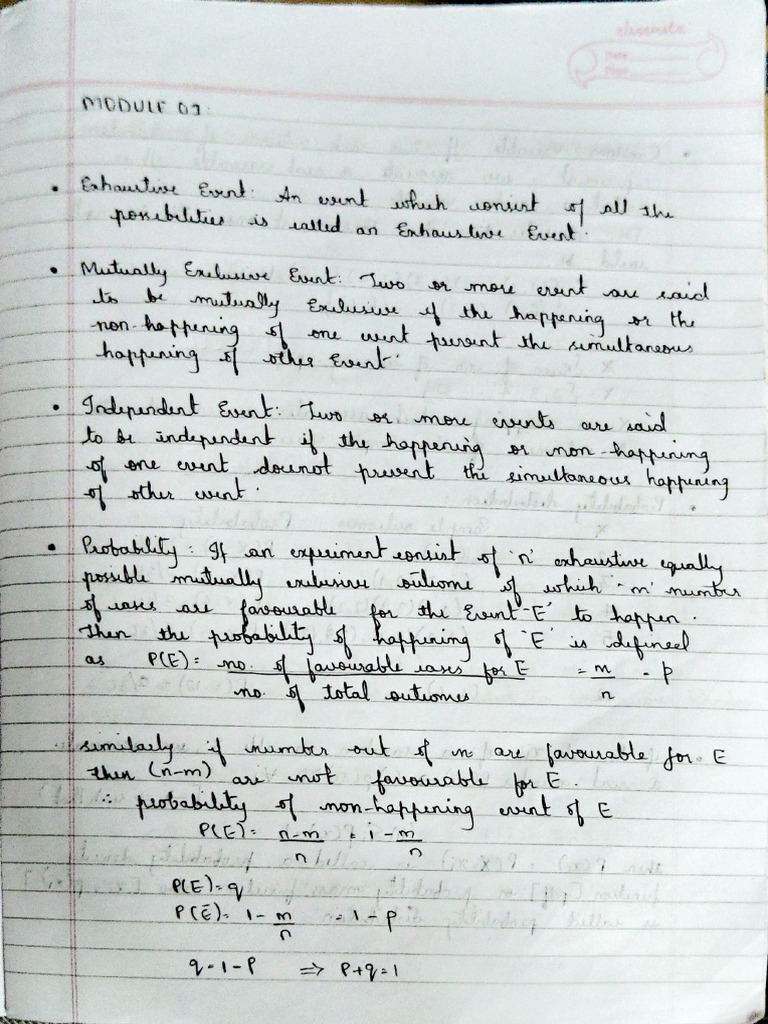 classmate
Date
Page
MODULE 03:
• Exhaustive Event: An event which consist of all the
possibilities is called an Exhaustive Event.
• Mutually Exclusive Event: Two or more event are said
to be mutually Exclusive if the happening or the
non-happening of one event prevent the simultaneous
happening of other Event.
• Independent Event: Two or more events are said
to be independent if the happening or non-happening
of one event doesnot prevent the simultaneous happening
of other event.
• Probability: If an experiment consist of 'n' exhaustive equally
possible mutually exclusive outcome of which 'm' number
of cases are favourable for the Event 'E' to happen.
Then the probability of happining of 'E' is defined
as P(E) = no. of favourable cases for E = m = p
no. of total outcomes n
similarly if number out of n are favourable for E
then (n-m) are not favourable for E.
∴ probability of non-happening event of E
P(E) = n-m = 1 - m
n n
P(E) = q
P(Ē) = 1 - m = 1 - p
n
q = 1 - P ⇒ P+q=1